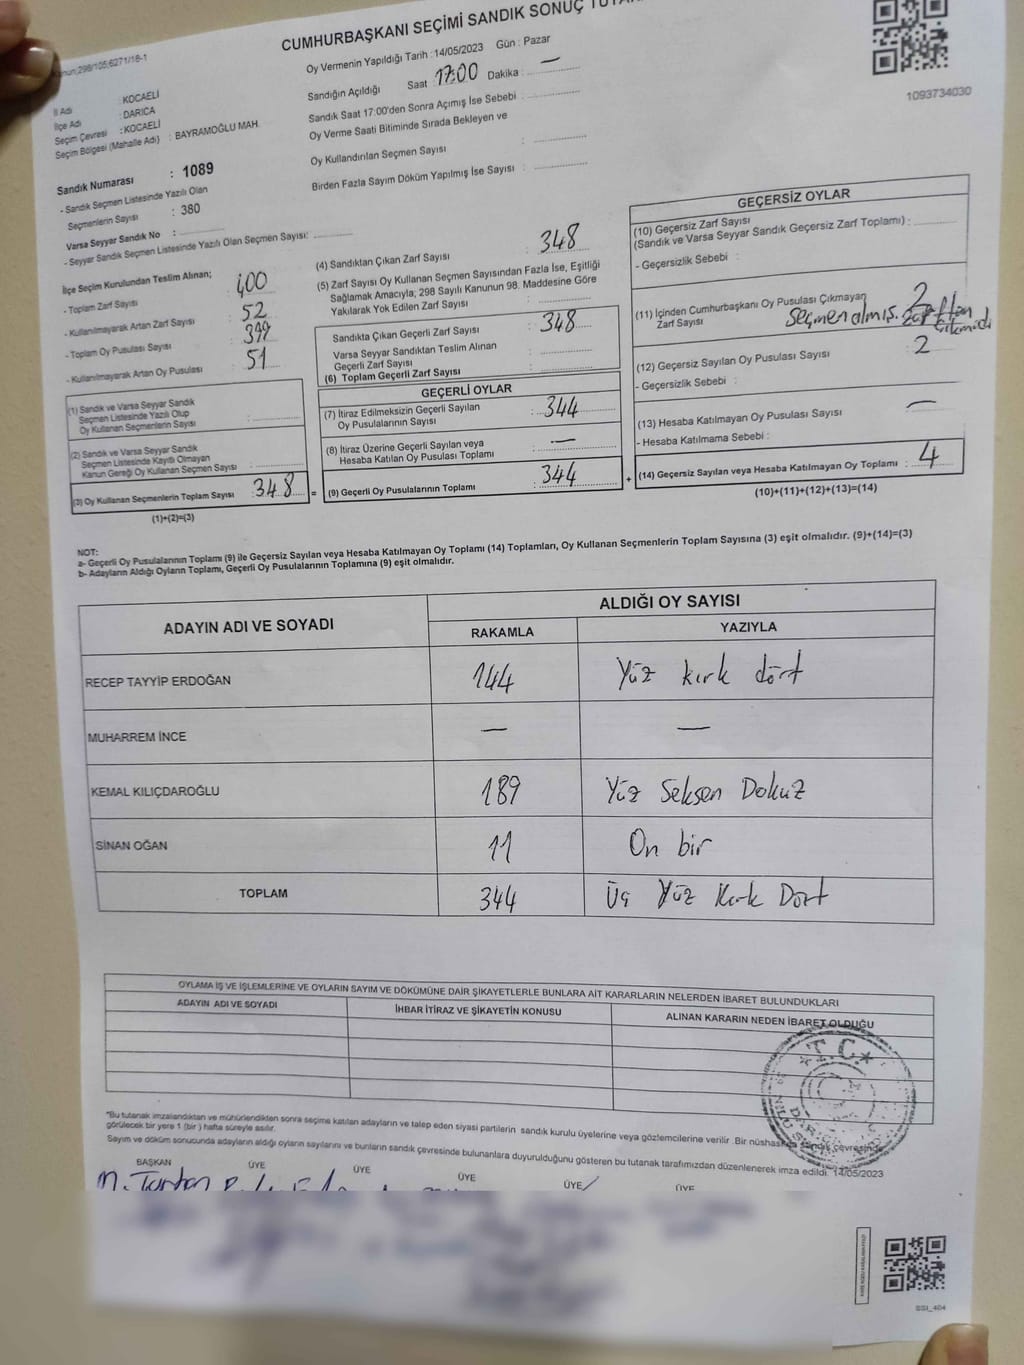 CUMHURBAŞKANI SEÇİMİ SANDIK SONUÇ
Kanun:298/105;6271/18-1
Oy Vermenin Yapıldığı Tarih : 14/05/2023 Gün : Pazar
Sandığın Açıldığı Saat 17:00 Dakika : —
Sandık Saat 17:00'den Sonra Açımış İse Sebebi :
Oy Verme Saati Bitiminde Sırada Bekleyen ve
Oy Kullandırılan Seçmen Sayısı :
Birden Fazla Sayım Döküm Yapılmış İse Sayısı :
1093734030
İl Adı : KOCAELİ
İlçe Adı : DARICA
Seçim Çevresi : KOCAELİ
Seçim Bölgesi (Mahalle Adı) : BAYRAMOĞLU MAH.
Sandık Numarası : 1089
- Sandık Seçmen Listesinde Yazılı Olan
Seçmenlerin Sayısı : 380
Varsa Seyyar Sandık No :
- Seyyar Sandık Seçmen Listesinde Yazılı Olan Seçmen Sayısı:
İlçe Seçim Kurulundan Teslim Alınan;
- Toplam Zarf Sayısı : 400
- Kullanılmayarak Artan Zarf Sayısı : 52
- Toplam Oy Pusulası Sayısı : 399
- Kullanılmayarak Artan Oy Pusulası : 51
(1) Sandık ve Varsa Seyyar Sandık
Seçmen Listesinde Yazılı Olup
Oy Kullanan Seçmenlerin Sayısı :
(2) Sandık ve Varsa Seyyar Sandık
Seçmen Listesinde Kayıtlı Olmayan
Kanun Gereği Oy Kullanan Seçmen Sayısı :
(3) Oy Kullanan Seçmenlerin Toplam Sayısı : 348
(1)+(2)=(3)
=
(4) Sandıktan Çıkan Zarf Sayısı : 348
(5) Zarf Sayısı Oy Kullanan Seçmen Sayısından Fazla İse, Eşitliği
Sağlamak Amacıyla; 298 Sayılı Kanunun 98. Maddesine Göre
Yakılarak Yok Edilen Zarf Sayısı :
Sandıkta Çıkan Geçerli Zarf Sayısı : 348
Varsa Seyyar Sandıktan Teslim Alınan
Geçerli Zarf Sayısı :
(6) Toplam Geçerli Zarf Sayısı :
GEÇERLİ OYLAR
(7) İtiraz Edilmeksizin Geçerli Sayılan
Oy Pusulalarının Sayısı : 344
(8) İtiraz Üzerine Geçerli Sayılan veya
Hesaba Katılan Oy Pusulası Toplamı : —
(9) Geçerli Oy Pusulalarının Toplamı : 344
+
GEÇERSİZ OYLAR
(10) Geçersiz Zarf Sayısı
(Sandık ve Varsa Seyyar Sandık Geçersiz Zarf Toplamı) :
- Geçersizlik Sebebi :
(11) İçinden Cumhurbaşkanı Oy Pusulası Çıkmayan
Zarf Sayısı 2
Seçmen almış. zarftan çıkmadı
(12) Geçersiz Sayılan Oy Pusulası Sayısı : 2
- Geçersizlik Sebebi :
(13) Hesaba Katılmayan Oy Pusulası Sayısı : —
- Hesaba Katılmama Sebebi :
(14) Geçersiz Sayılan veya Hesaba Katılmayan Oy Toplamı : 4
(10)+(11)+(12)+(13)=(14)
NOT:
a- Geçerli Oy Pusulalarının Toplamı (9) ile Geçersiz Sayılan veya Hesaba Katılmayan Oy Toplamı (14) Toplamları, Oy Kullanan Seçmenlerin Toplam Sayısına (3) eşit olmalıdır. (9)+(14)=(3)
b- Adayların Aldığı Oyların Toplamı, Geçerli Oy Pusulalarının Toplamına (9) eşit olmalıdır.
ADAYIN ADI VE SOYADI
ALDIĞI OY SAYISI
RAKAMLA YAZIYLA
RECEP TAYYİP ERDOĞAN 144 Yüz kırk dört
MUHARREM İNCE — —
KEMAL KILIÇDAROĞLU 189 Yüz Seksen Dokuz
SİNAN OĞAN 11 On bir
TOPLAM 344 Üç Yüz Kırk Dört
OYLAMA İŞ VE İŞLEMLERİNE VE OYLARIN SAYIM VE DÖKÜMÜNE DAİR ŞİKAYETLERLE BUNLARA AİT KARARLARIN NELERDEN İBARET BULUNDUKLARI
ADAYIN ADI VE SOYADI İHBAR İTİRAZ VE ŞİKAYETİN KONUSU ALINAN KARARIN NEDEN İBARET OLDUĞU
*T.C.*
*Bu tutanak imzalandıktan ve mühürlendikten sonra seçime katılan adayların ve talep eden siyasi partilerin sandık kurulu üyelerine veya gözlemcilerine verilir. Bir nüshası da sandık çevresinde
görülecek bir yere 1 (bir) hafta süreyle asılır.
Sayım ve döküm sonucunda adayların aldığı oyların sayılarını ve bunların sandık çevresinde bulunanlara duyurulduğunu gösteren bu tutanak tarafımızdan düzenlenerek imza edildi. 14/05/2023
BAŞKAN ÜYE ÜYE ÜYE ÜYE ÜYE
SSI_404